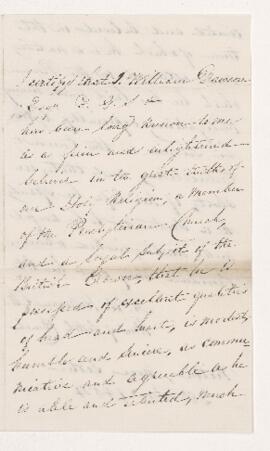 I certify that J. William Dawson
Esqr F. G. S. &c
has been long known to me
as a firm and enlightened
believer in the great truths of
our Holy Religion, a member
of the Presbyterian Church,
and a loyal subject of the
British Crown, that he is
possessed of excellent qualities
of head and heart, is modest,
humble and sincere, as commu-
nicative and agreeable as he
is able and talented, much